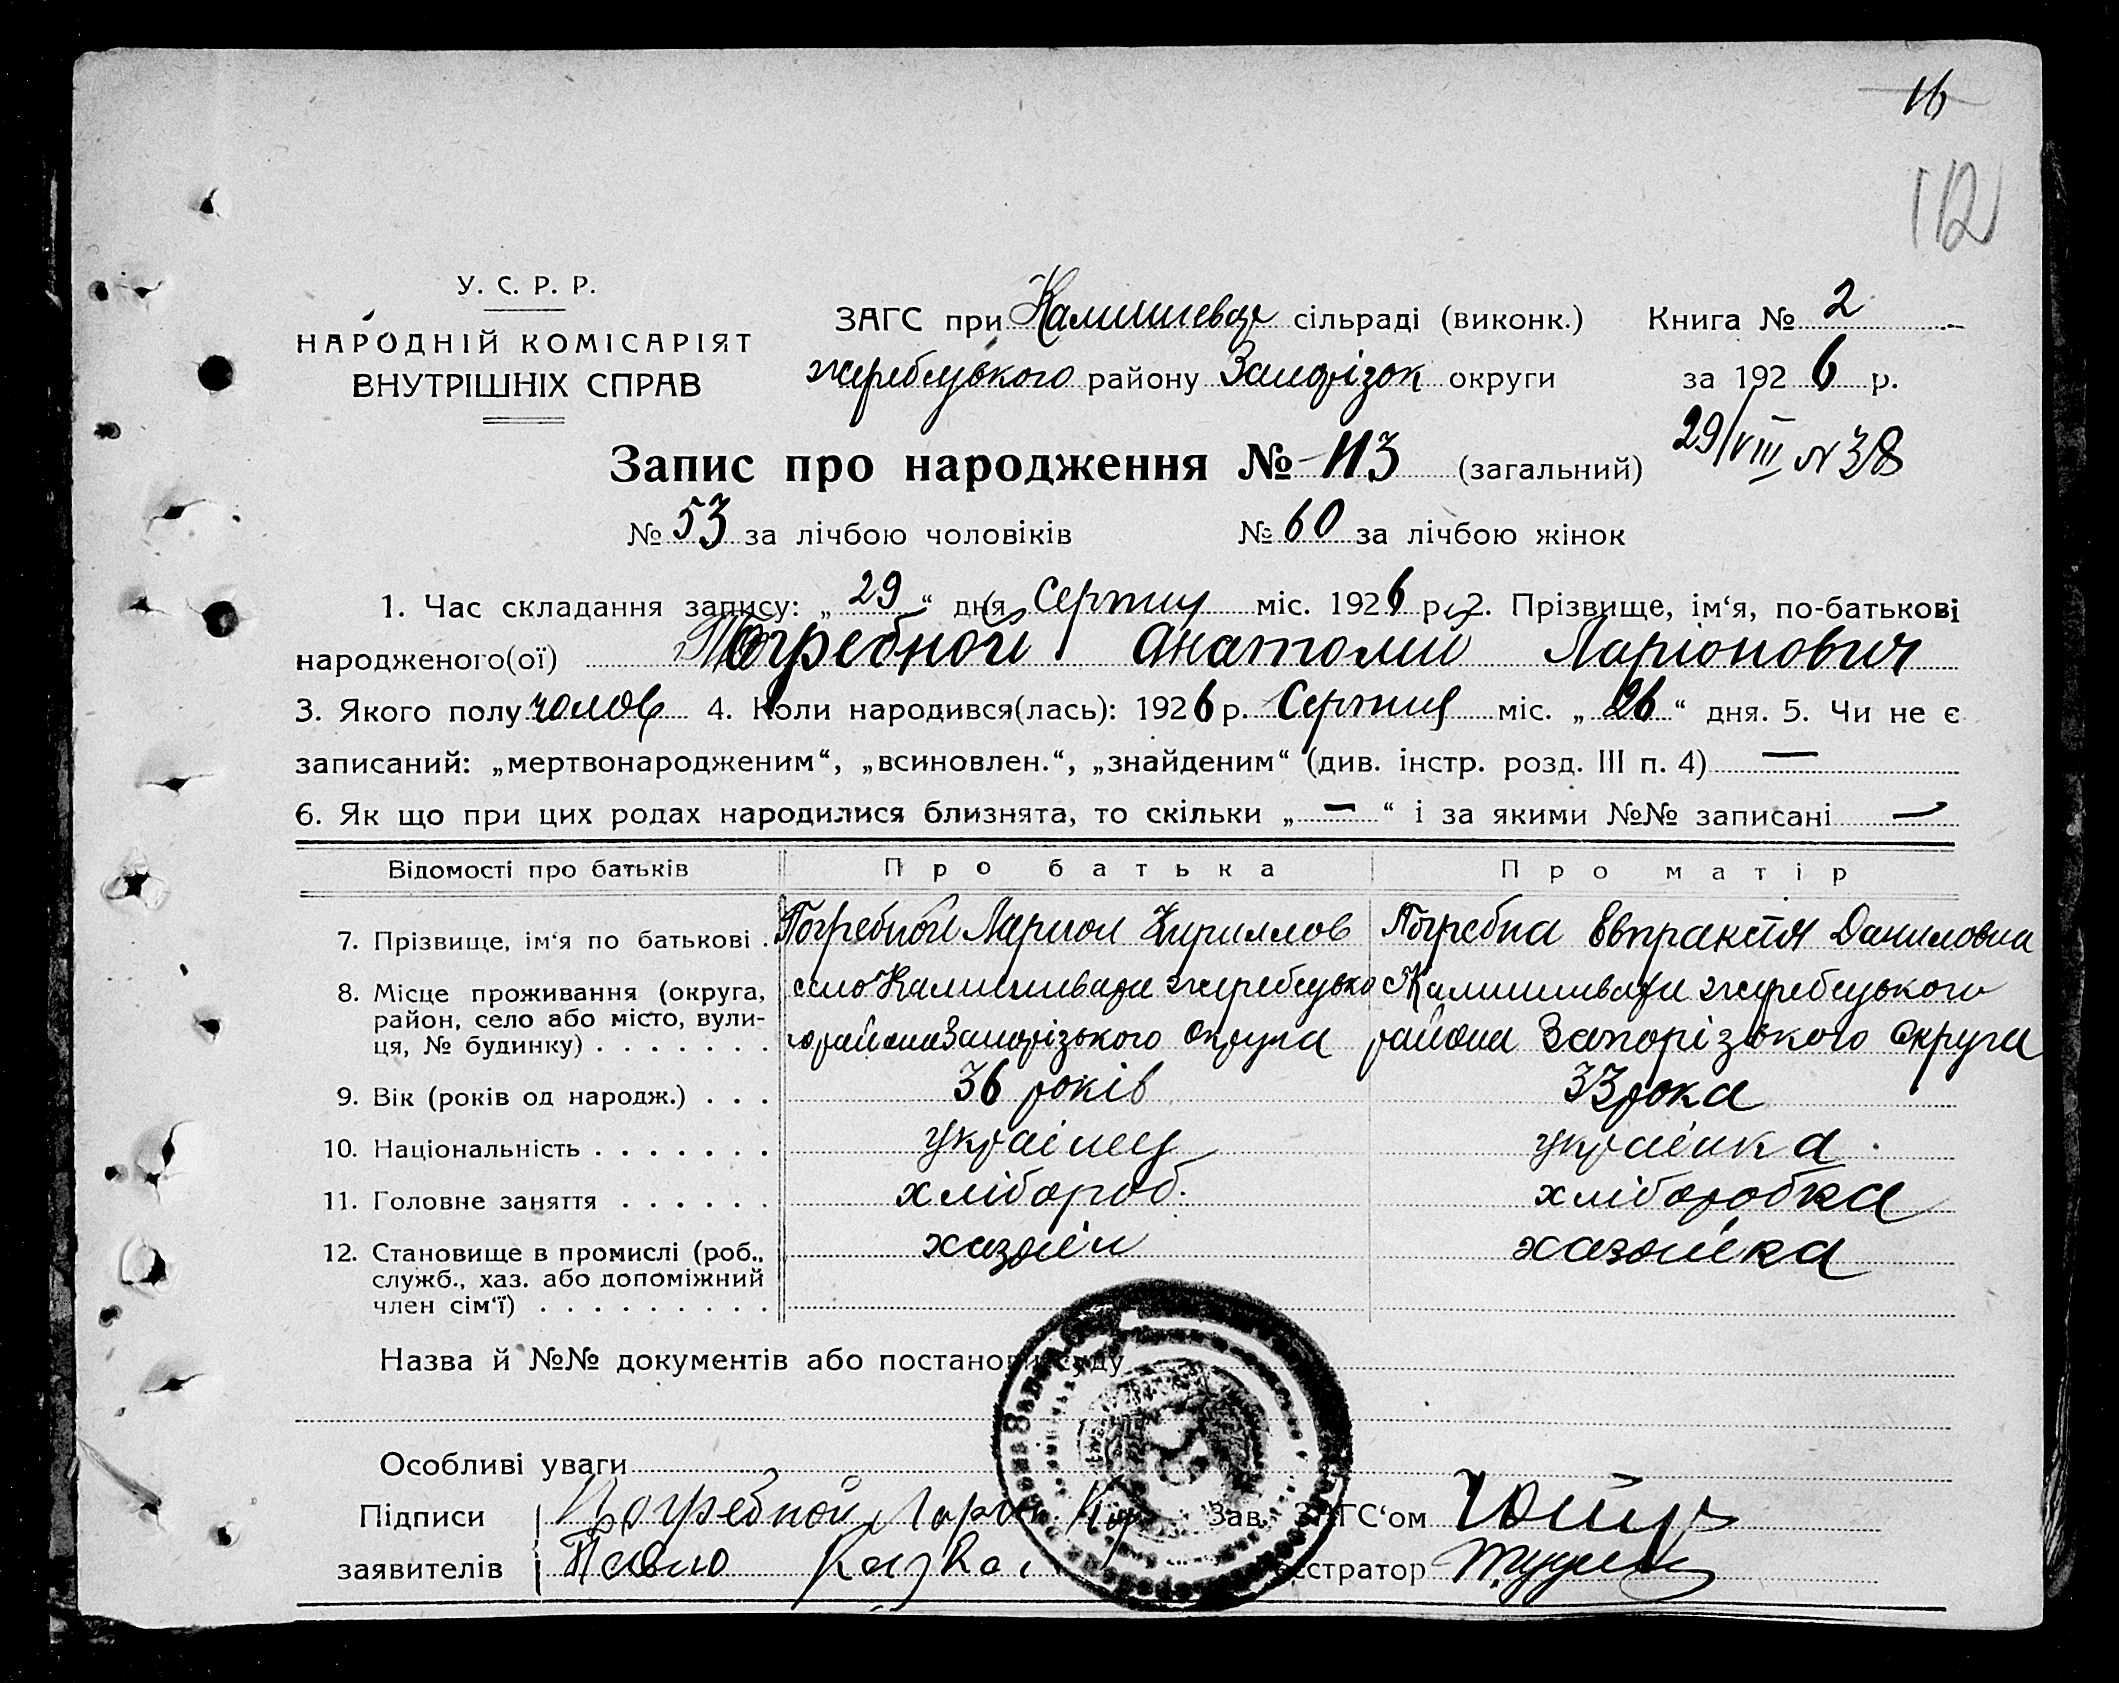 16
112
У. С. Р. Р.
НАРОДНІЙ КОМІСАРІЯТ
ВНУТРІШНІХ СПРАВ
ЗАГС при сільраді (виконк.) Книга № 2
жеребецького району Запорізок округи за 1926 р.
29/VIII N 38
Запис про народження № 113 (загальний)
№ 53 за лічбою чоловіків № 60 за лічбою жінок
1. Час складання запису: „29“ дня Серпня міс. 1926 р. 2. Прізвище, ім‘я, по-батькові
народженого(ої) Погребной Анатолий Ларіонович
3. Якого полу чолов 4. Коли народився(лась): 1926 р. Серпня міс. „26“ дня. 5. Чи не є
записаний: „мертвонародженим“, „всиновлен.“, „знайденим“ (див. інстр. розд. III п. 4) —
6. Як що при цих родах народилися близнята, то скільки „—“ і за якими №№ записані —
Відомості про батьків Про батька Про матір
7. Прізвище, ім‘я по батькові . Погребной Ларион Кириллов Погребна Евпраксія Даниловна
8. Місце проживання (округа, село жеребецько жеребецького
район, село або місто, вули-
ця, № будинку) . . . . . . . го района Запорізького Округа района Запорізького Округа
9. Вік (років од народж.) . . . 36 років 33 рока
10. Національність . . . . . . . українец українка
11. Головне заняття . . . . . . хлібороб. хліборобка
12. Становище в промислі (роб., хазяін хазяіка
служб., хаз. або допоміжний
член сім‘ї) . . . . . . . . .
Назва й №№ документів або постанови суду
Особливі уваги
Підписи Погребной Ларион Кир Зав. ЗАГС‘ом
заявителів Павло Реєстратор